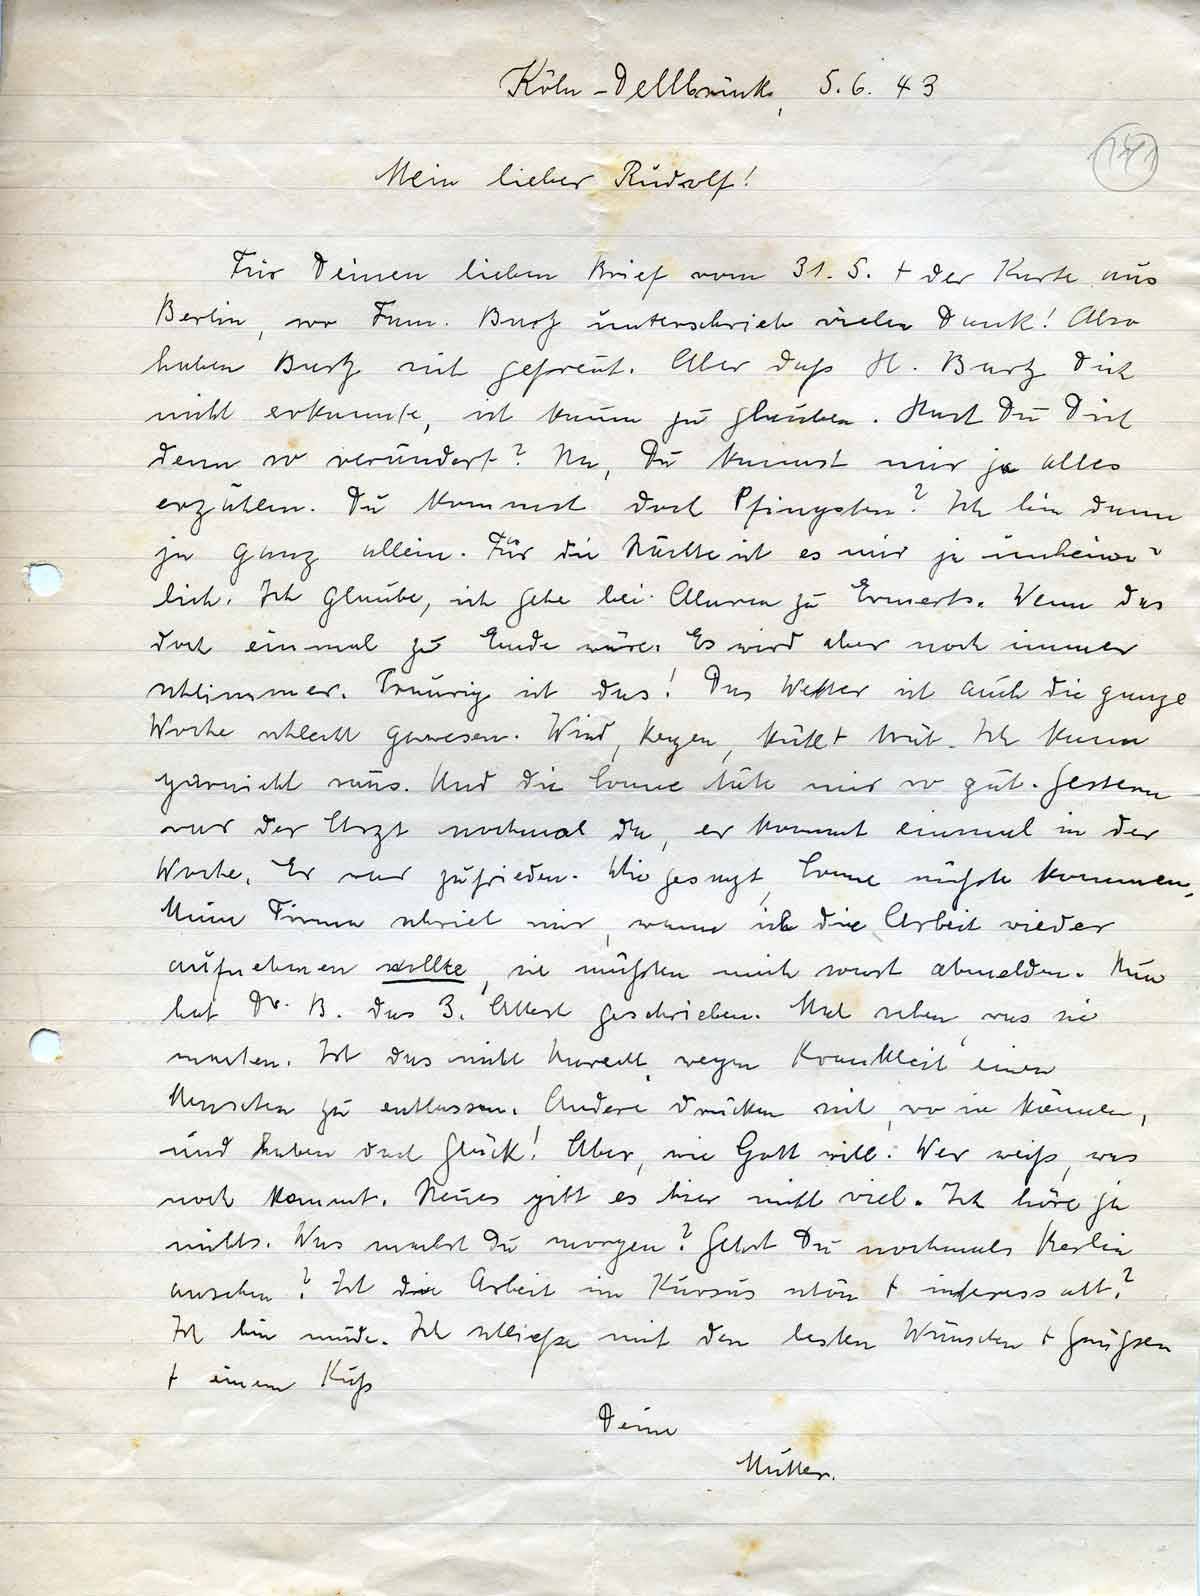 Köln-Dellbrück, 5.6.43
Mein lieber Rudolf!
Für Deinen lieben Brief vom 31.5. + der Karte aus
Berlin, wo Fam. Burtz unterschrieb vielen Dank! Also
haben Burtz sich gefreut. Aber daß H. Burtz Dich
nicht erkannte, ist kaum zu glauben. Hast Du Dich
denn so verändert? Na, Du kannst mir ja alles
erzählen. Du kommst doch Pfingsten? Ich bin dann
ja ganz allein. Für die Nächte ist es mir ja unheim-
lich. Ich glaube, ich gehe bei Alarm zu Ermerts. Wenn das
doch einmal zu Ende wäre. Es wird aber noch immer
schlimmer. Traurig ist das! Das Wetter ist auch die ganze
Woche schlecht gewesen. Wind, Regen, kühl + trüb. Ich kann
garnicht raus. Und die Sonne täte mir so gut. Gestern
war der Arzt nochmal da, er kommt einmal in der
Woche. Er war zufrieden. Wie gesagt, Sonne müßte kommen.
Meine Firma schrieb mir, wann ich die Arbeit wieder
aufnehmen wollte, sie müßten mich sonst abmelden. Nun
hat Dr. B. das 3. Attest geschrieben. Mal sehen was sie
machen. Ist das nicht Unrecht, wegen Krankheit einen
Menschen zu entlassen. Andere drücken sich, wo sie können,
und haben doch Glück! Aber, wie Gott will. Wer weiß, was
noch kommt. Neues gibt es hier nicht viel. Ich höre ja
nichts. Was machst Du morgen? Gehst Du nochmals Berlin
ansehen? Ist die Arbeit im Kursus schön + interessant?
Ich bin müde. Ich schließe mit den besten Wünschen + Grüßen
+ einem Kuß
Deine
Mutter.